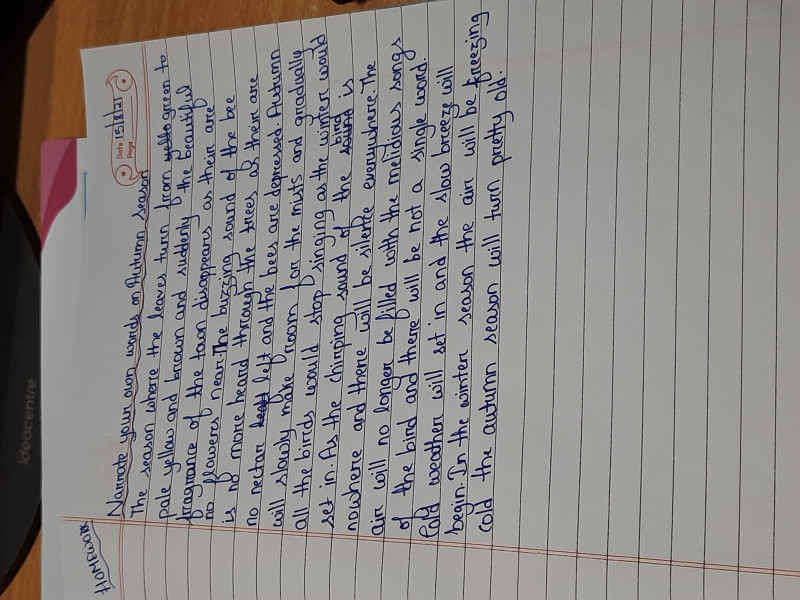 ideacentre
HOMEWORK
Date 15/8/21
Page
Narrate your own words on Autumn season
The season where the leaves turn from green to
pale yellow and brown and suddenly the beautiful
fragrance of the town disappears as their are
no floweres near. The buzzing sound of the bee
is no more heard through the trees as their are
no nectar left and the bees are depressed. Autumn
will slowly make room for the mists and gradually
all the birds would stop singing as the winter would
set in. As the chirping sound of the bird is
nowhere and there will be silence everywhere. The
air will no longer be filled with the melidious songs
of the bird and there will be not a single word.
Cold weather will set in and the slow breeze will
begin. In the winter season the air will be freezing
cold the autumn season will turn pretty old.